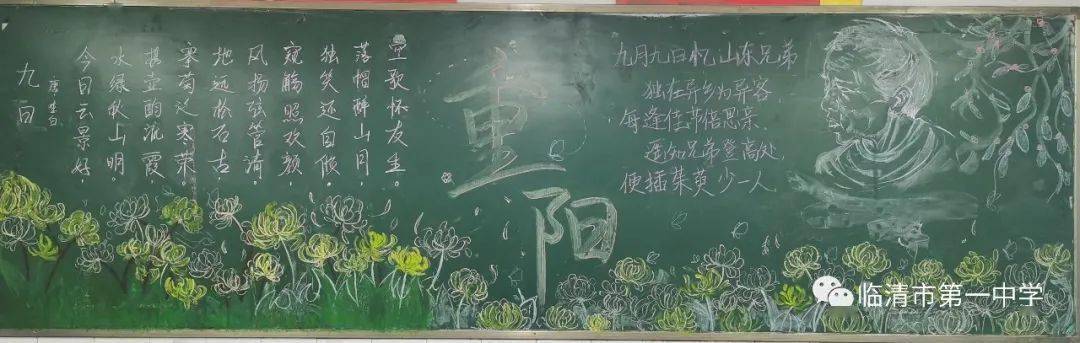 九日
唐 李白
今日云景好，
水绿秋山明。
携壶酌流霞，
搴菊泛寒荣。
地远松石古，
风扬弦管清。
窥觞照欢颜，
独笑还自倾。
落帽醉山月，
空歌怀友生。
重阳
九月九日忆山东兄弟
独在异乡为异客，
每逢佳节倍思亲。
遥知兄弟登高处，
便插茱萸少一人
临清市第一中学